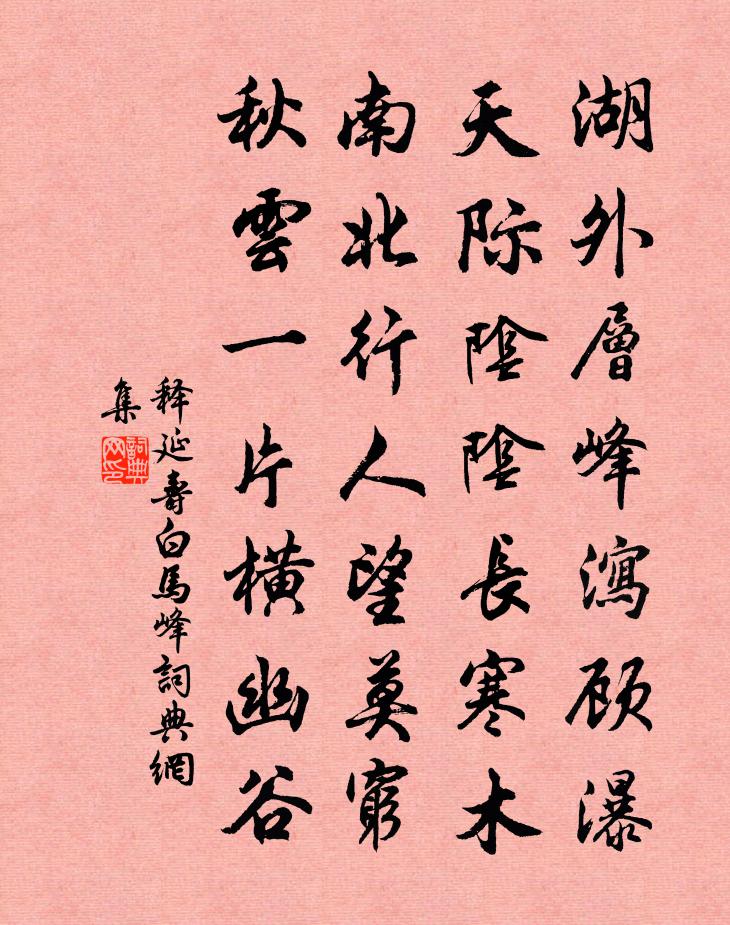 湖外層峰瀉顾瀑
天际陰陰長寒木
南北行人望莫窮
秋雲一片橫幽谷
释延壽白馬峰詞典網
集
詞典
网印